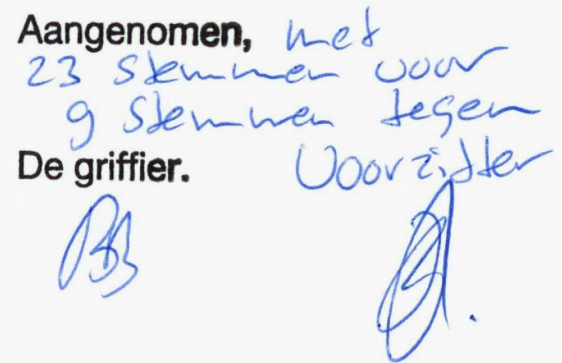 Aangenomen, met
23 stemmen voor
9 stemmen tegen
De griffier. Voorzitter